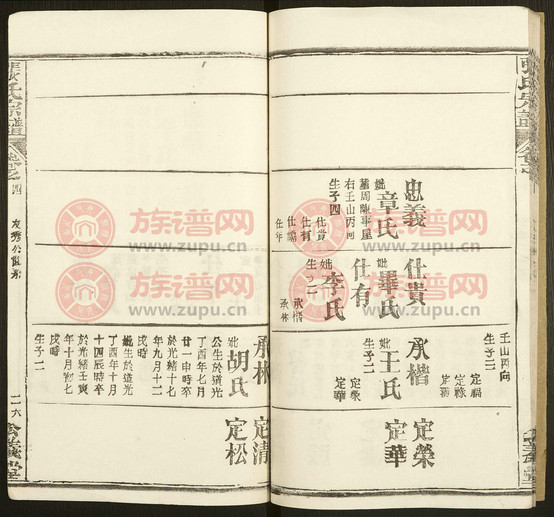 張氏宗譜
忠義
妣章氏
葬周陳事屋
右壬山丙向
生子四
仕貴
仕有
仕年
仕貴
妣畢氏
仕有
妣李氏
生子二
承楷
承林
壬山丙向
生子三
定福
定祿
定清
承楷
妣王氏
生子二
定榮
定華
定榮
定華
承林
妣胡氏
公生於道光
丁酉年七月
廿一申時卒
於光緒十七
年九月十二
戌時
妣生於道光
丁酉年十月
十四辰時卒
於光緒壬寅
年十月初七
戌時
生子二
定清
定松
張氏宗譜
友
公
二六
義堂
族谱网
www.zupu.cn
族谱网
www.zupu.cn
族谱网
www.zupu.cn
族谱网
www.zupu.cn